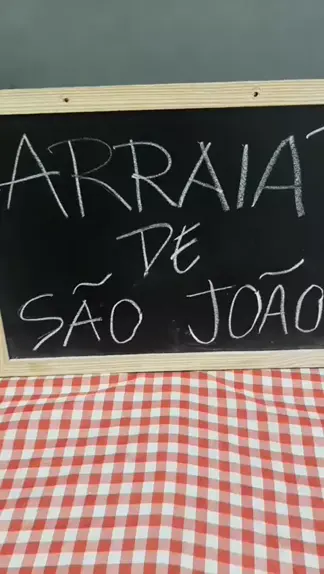 ARRAIA
DE
SÃO JOÃO